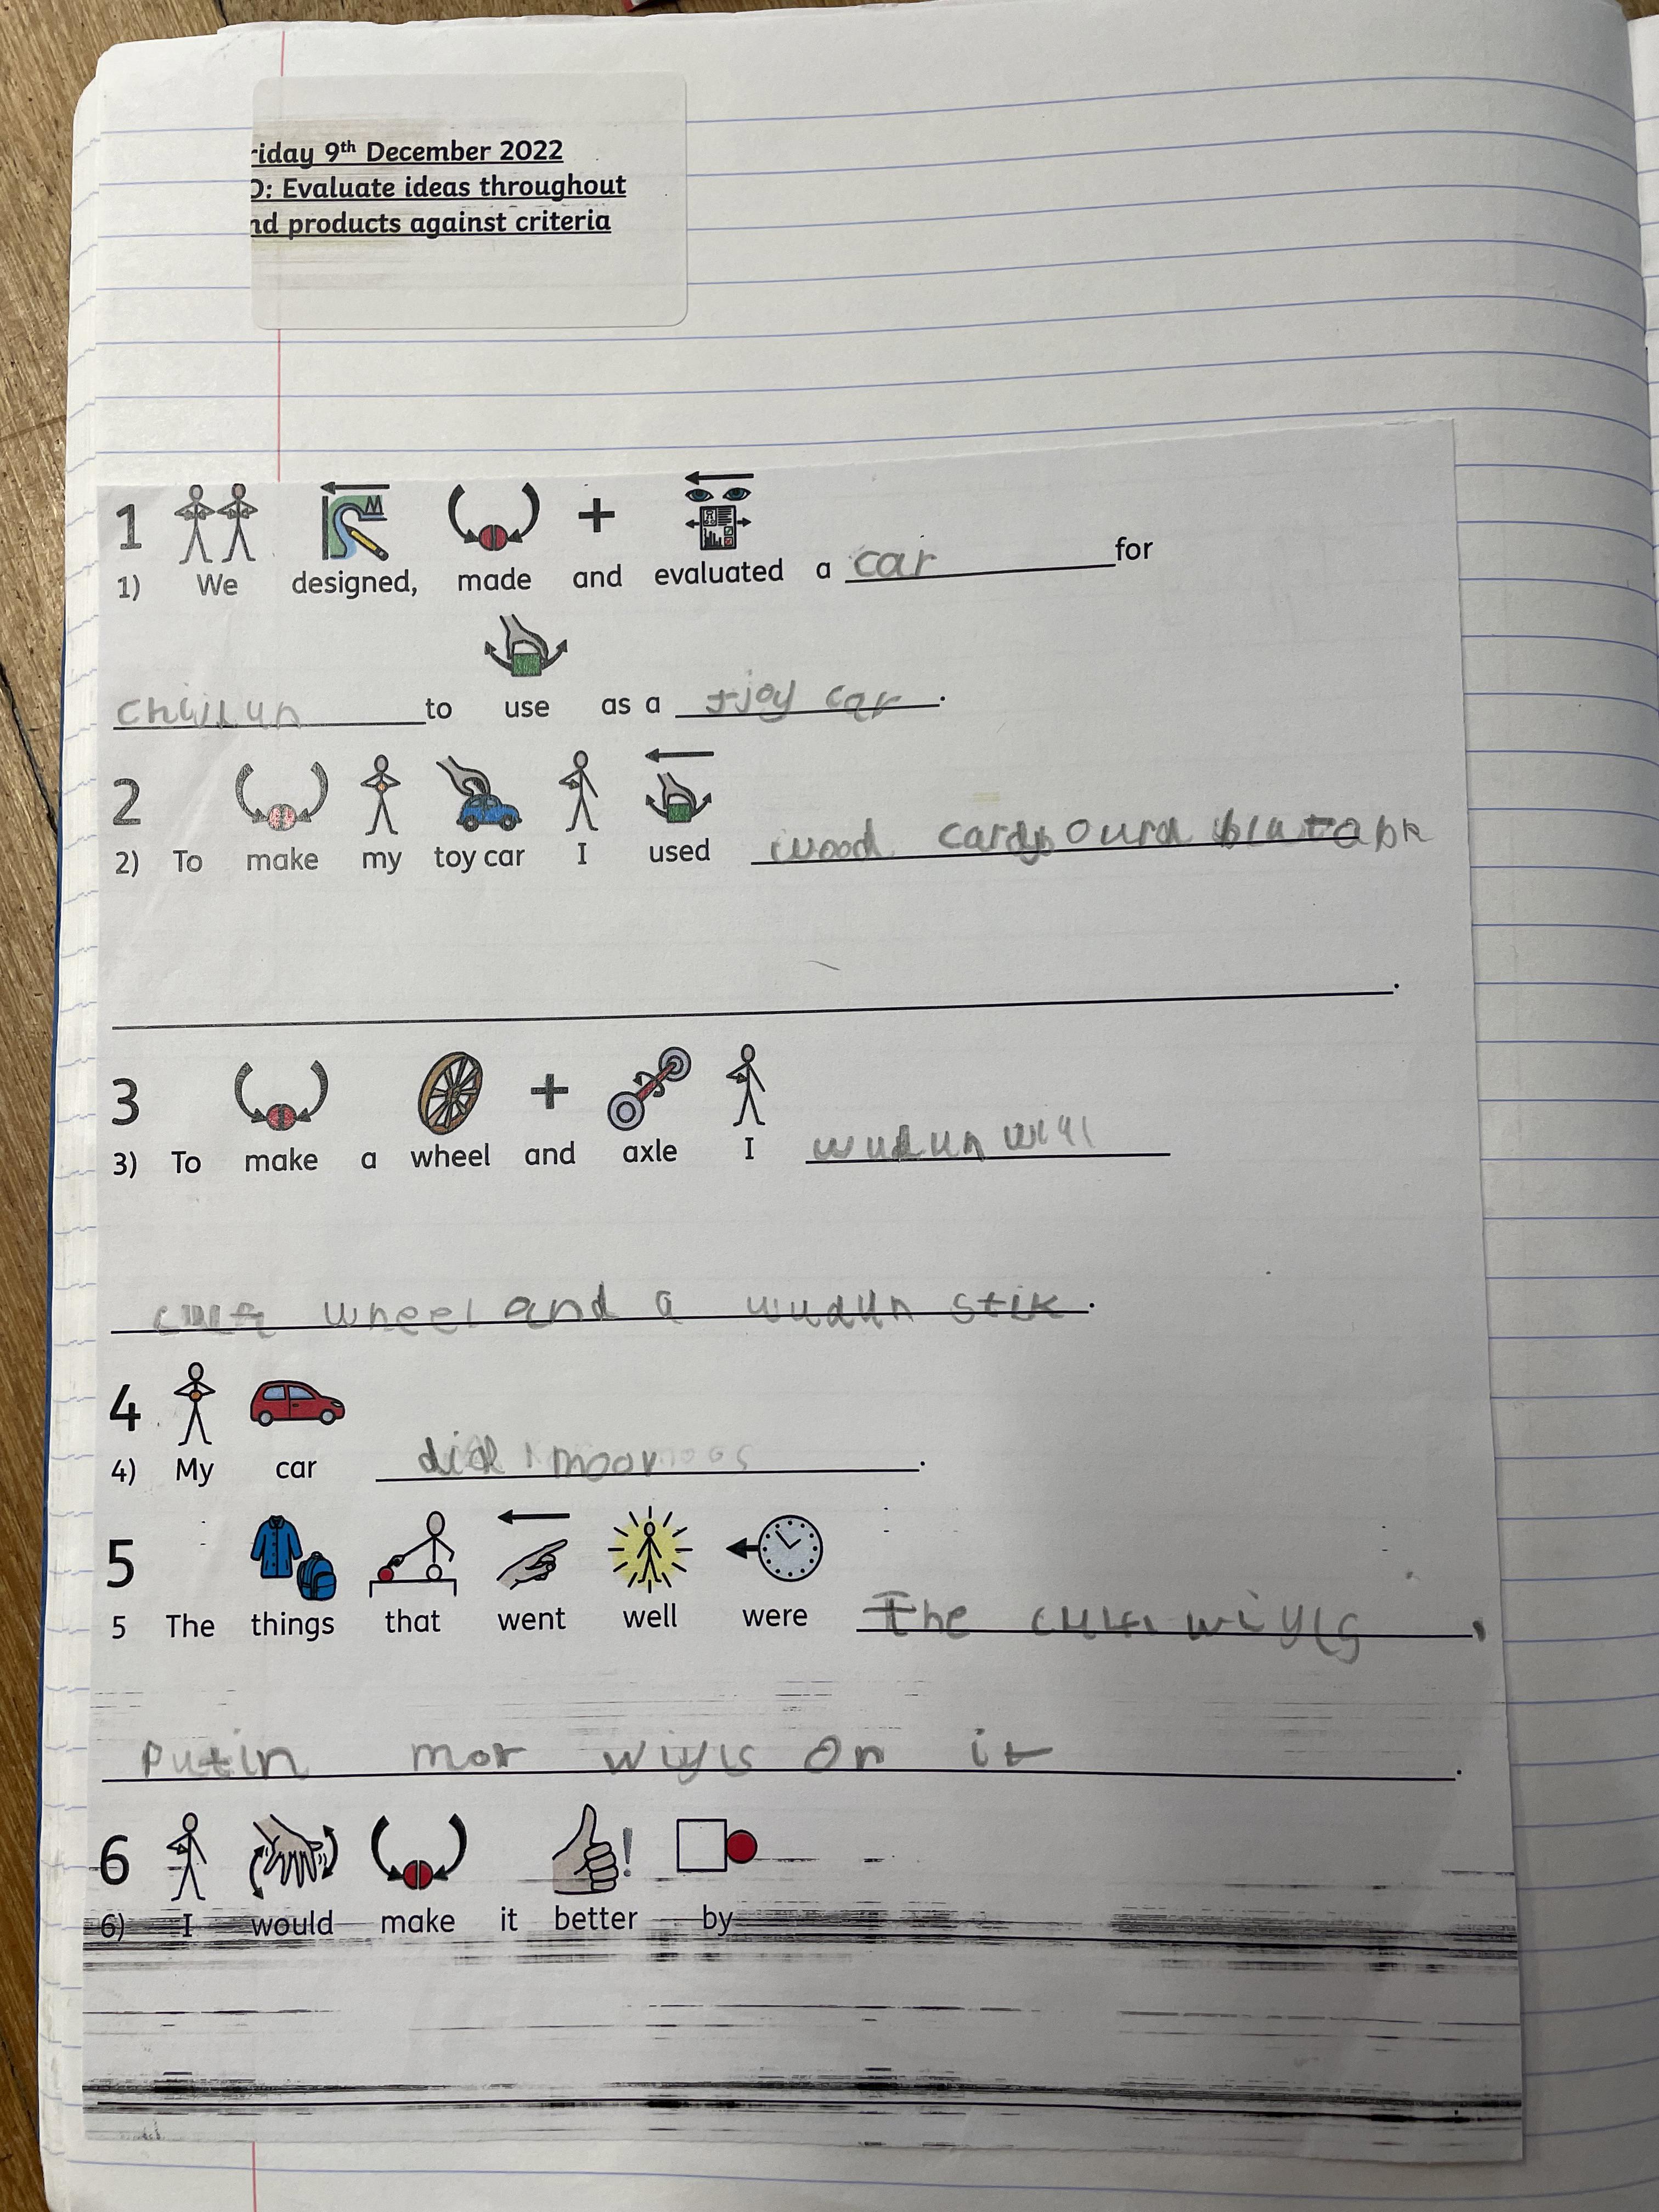 riday 9th December 2022
O: Evaluate ideas throughout
nd products against criteria
1
1) We designed, made and evaluated a car for
to use as a tjoy car.
2
2) To make my toy car I used wood cardbourd
3
3) To make a wheel and axle I wudun wiyl
wheel and a wudun stik.
4
4) My car did moov.
5
5 The things that went well were The wiyls
Putin mor wiyls on it.
6
6) I would make it better by